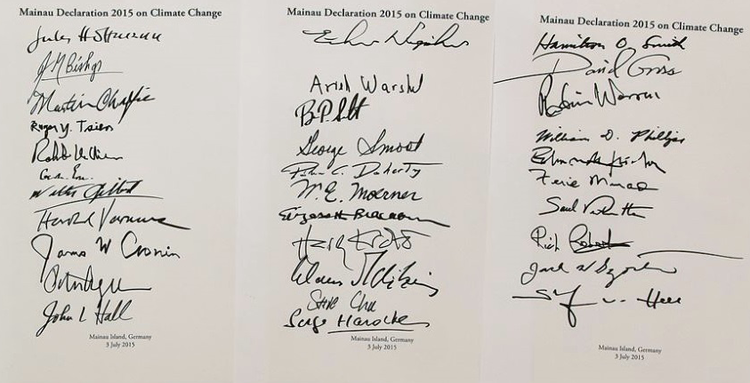 Mainau Declaration 2015 on Climate Change
J M Bishop
Martin Chalfie
Roger Y. Tsien
Walter Gilbert
Harold Varmus
James W Cronin
John L Hall
Mainau Island, Germany
3 July 2015
Mainau Declaration 2015 on Climate Change
Arieh Warshel
George Smoot
Peter C. Doherty
W. E. Moerner
Elizabeth Blackburn
Steve Chu
Serge Haroche
Mainau Island, Germany
3 July 2015
Mainau Declaration 2015 on Climate Change
Hamilton O. Smith
David Gross
Robin Warren
William D. Phillips
Edmond Fischer
Ferid Murad
Saul Perlmutter
Rich Roberts
Jack W Szostak
Mainau Island, Germany
3 July 2015